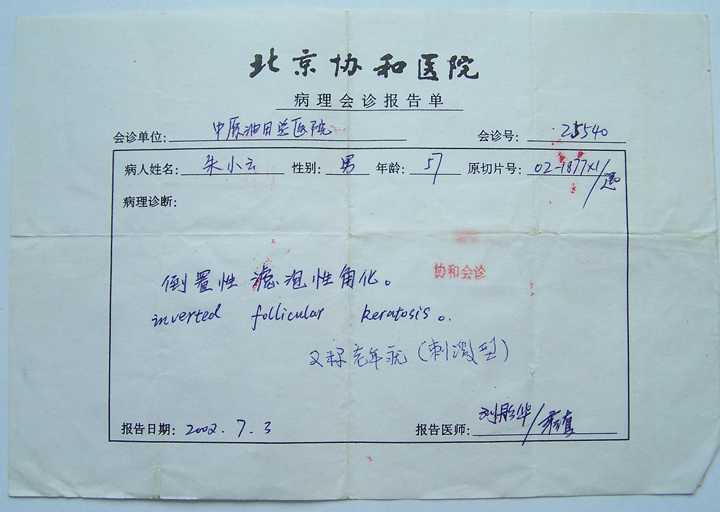 北京协和医院
病理会诊报告单
会诊单位: 中原油田总医院 会诊号: 25540
病人姓名: 朱小云 性别: 男 年龄: 57 原切片号: 02-1877x1/
病理诊断:
协和会诊
倒置性 滤泡性角化。
inverted follicular keratosis。
又称老年疣(刺激型)
报告日期: 2002.7.3 报告医师: 刘彤华/